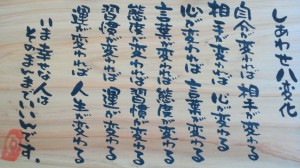 しあわせ八変化
自分が変われば 相手が変わる
相手が変われば 心が変わる
心が変われば 言葉が変わる
言葉が変われば 態度が変わる
態度が変われば 習慣が変わる
習慣が変われば 運が変わる
運が変われば 人生が変わる
いま幸せな人は
そのままでいいんです。